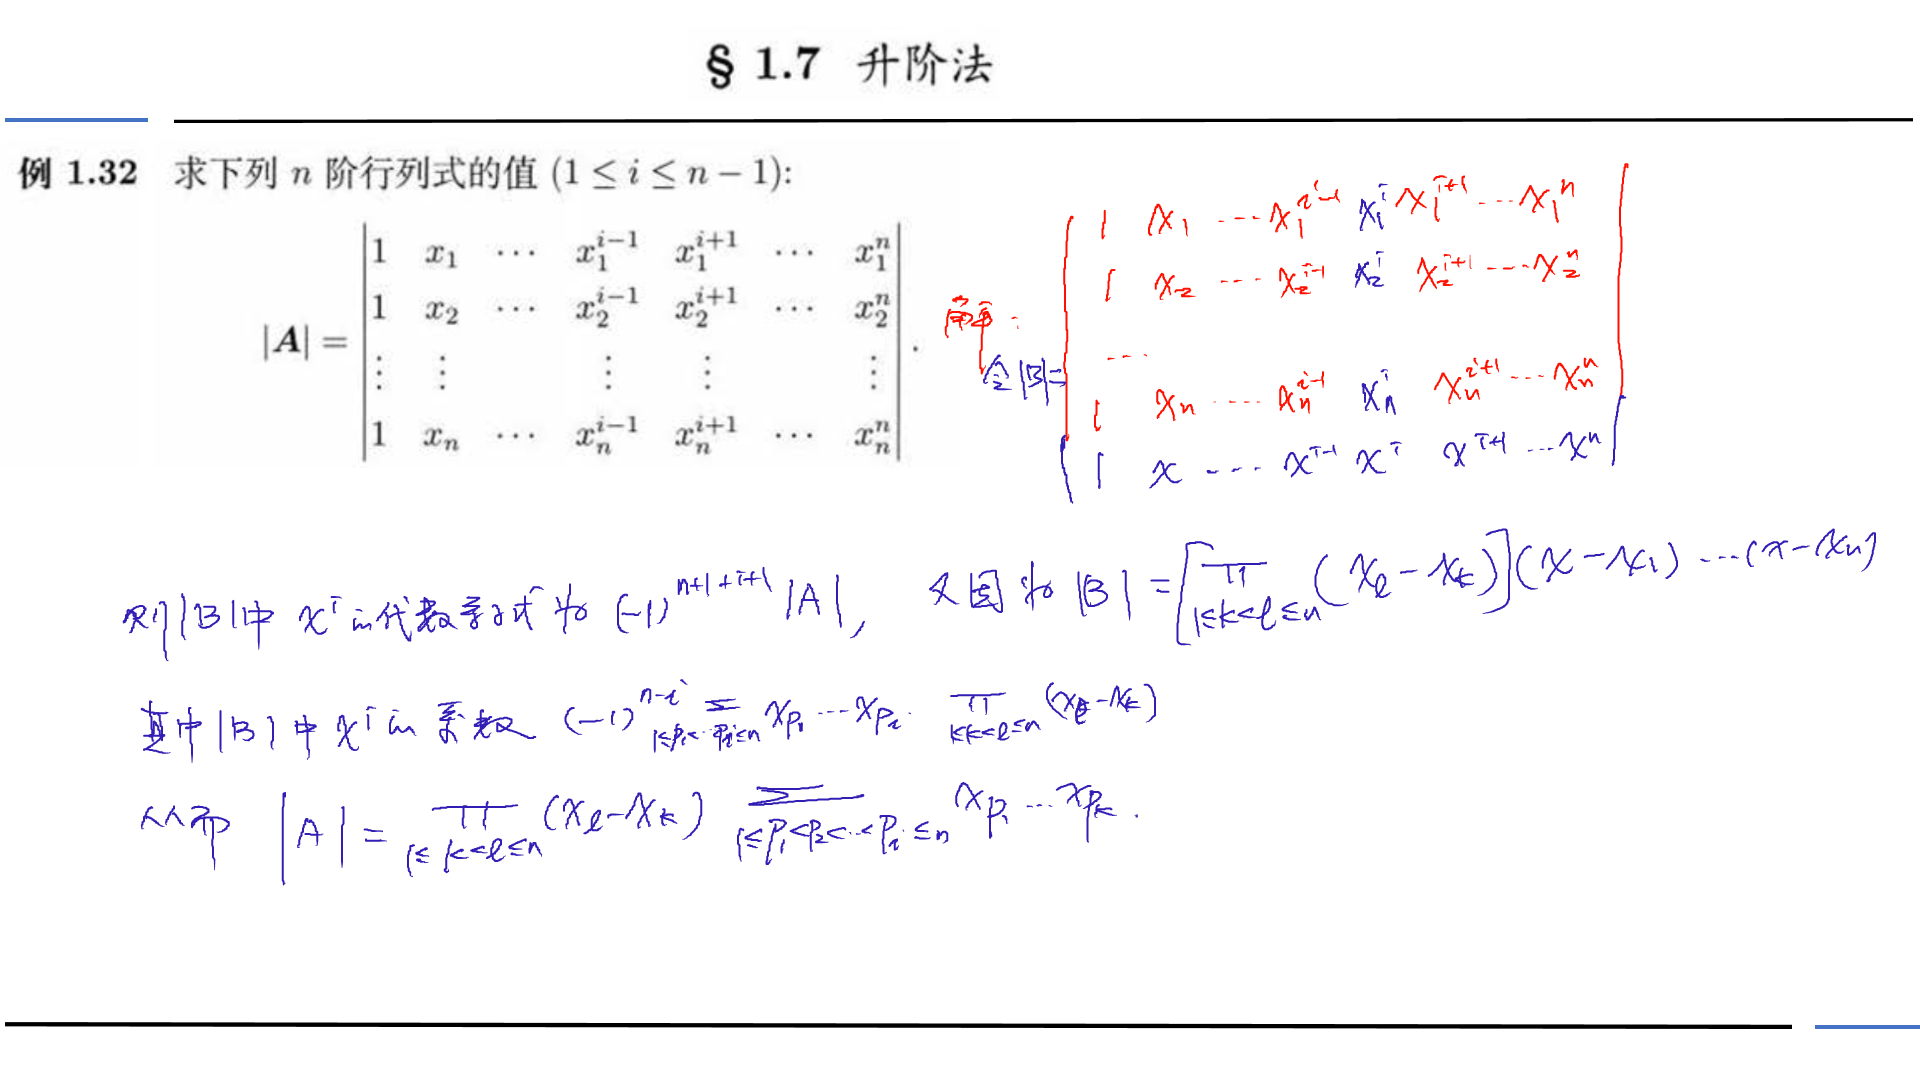 § 1.7 升阶法
例 1.32 求下列 n 阶行列式的值 (1 ≤ i ≤ n − 1):
|A| = | 1 x_1 ⋯ x_1^{i−1} x_1^{i+1} ⋯ x_1^n |
| 1 x_2 ⋯ x_2^{i−1} x_2^{i+1} ⋯ x_2^n |
| ⋮ ⋮ ⋮ ⋮ ⋮ |
| 1 x_n ⋯ x_n^{i−1} x_n^{i+1} ⋯ x_n^n | .
解:
令|B|= | 1 x_1 ⋯ x_1^{i−1} x_1^i x_1^{i+1} ⋯ x_1^n |
| 1 x_2 ⋯ x_2^{i−1} x_2^i x_2^{i+1} ⋯ x_2^n |
| ⋯ |
| 1 x_n ⋯ x_n^{i−1} x_n^i x_n^{i+1} ⋯ x_n^n |
| 1 x ⋯ x^{i−1} x^i x^{i+1} ⋯ x^n |
则|B|中 x^i 的代数余子式为 (−1)^{n+1+i+1} |A|, 又因为 |B| = [∏_{1≤k<l≤n} (x_l − x_k)](x − x_1) ⋯ (x − x_n)
其中|B|中 x^i 的系数 (−1)^{n−i} Σ_{1≤p_1<⋯p_i≤n} x_{p_1} ⋯ x_{p_i} · ∏_{1≤k<l≤n} (x_l − x_k)
从而 |A| = ∏_{1≤k<l≤n} (x_l − x_k) Σ_{1≤p_1<p_2<⋯<p_i≤n} x_{p_1} ⋯ x_{p_k} .